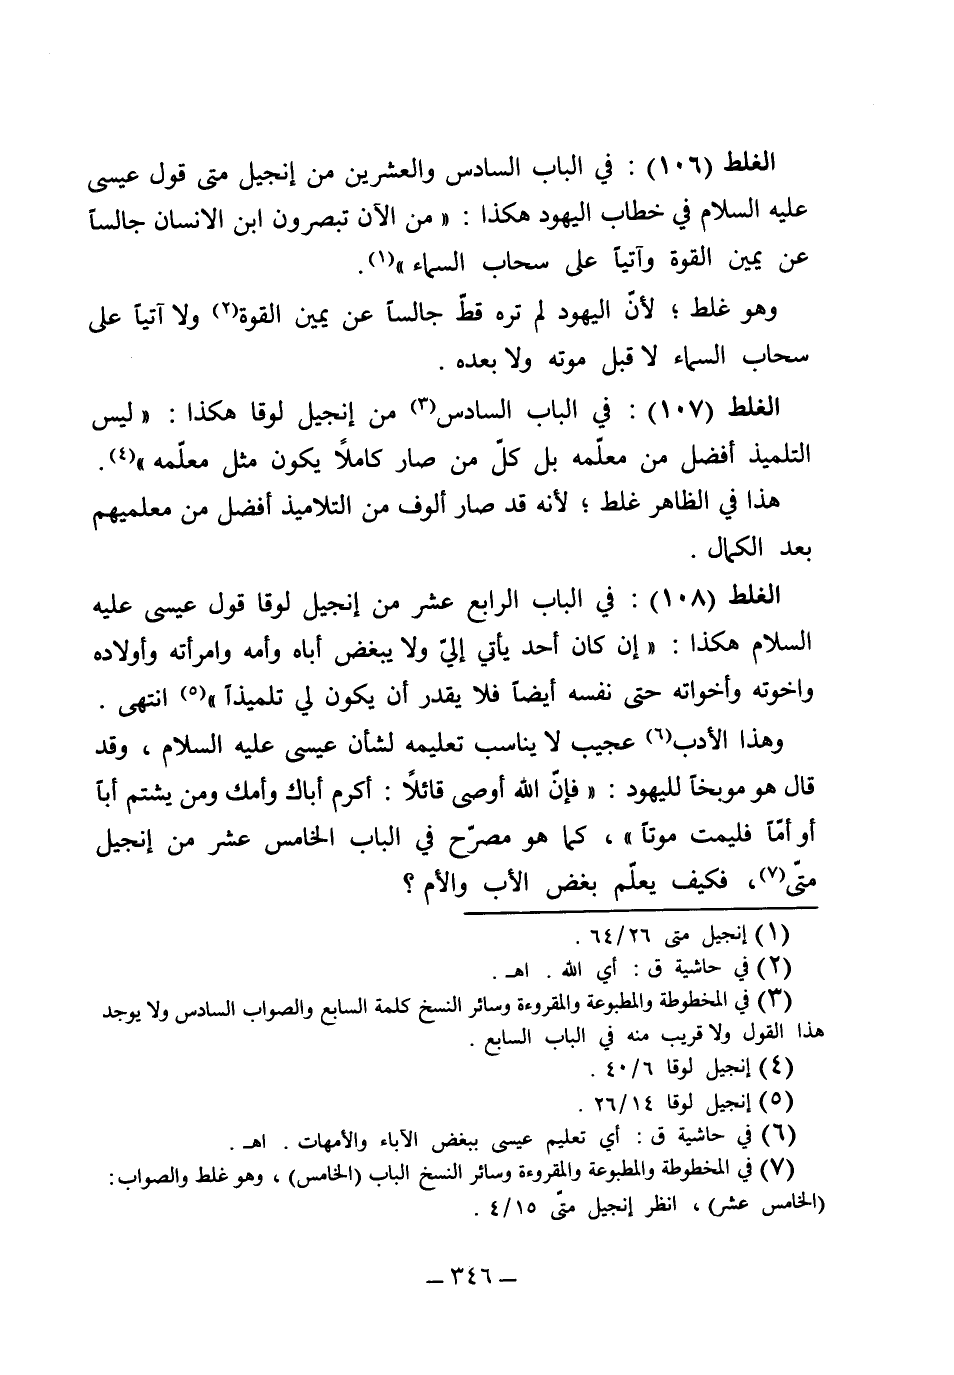 الغلط (١٠٦) : في الباب السادس والعشرين من إنجيل متى قول عيسى
عليه السلام في خطاب اليهود هكذا : « من الآن تبصرون ابن الانسان جالساً
عن يمين القوة وآتياً على سحاب السماء »(١).
وهو غلط ؛ لأنّ اليهود لم تره قطّ جالساً عن يمين القوة(٢) ولا آتياً على
سحاب السماء لا قبل موته ولا بعده .
الغلط (١٠٧) : في الباب السادس(٣) من إنجيل لوقا هكذا : « ليس
التلميذ أفضل من معلّمه بل كلّ من صار كاملاً يكون مثل معلّمه »(٤).
هذا في الظاهر غلط ؛ لأنه قد صار ألوف من التلاميذ أفضل من معلميهم
بعد الكمال .
الغلط (١٠٨) : في الباب الرابع عشر من إنجيل لوقا قول عيسى عليه
السلام هكذا : « إن كان أحد يأتي إليّ ولا يبغض أباه وأمه وامرأته وأولاده
واخوته وأخواته حتى نفسه أيضاً فلا يقدر أن يكون لي تلميذاً »(٥) انتهى .
وهذا الأدب(٦) عجيب لا يناسب تعليمه لشأن عيسى عليه السلام ، وقد
قال هو موبخاً لليهود : « فإنّ الله أوصى قائلاً : أكرم أباك وأمك ومن يشتم أباً
أو أمّاً فليمت موتاً » ، كما هو مصرّح في الباب الخامس عشر من إنجيل
متّى(٧)، فكيف يعلّم بغض الأب والأم ؟
(١) إنجيل متى ٦٤/٢٦ .
(٢) في حاشية ق : أي الله . اهـ .
(٣) في المخطوطة والمطبوعة والمقروءة وسائر النسخ كلمة السابع والصواب السادس ولا يوجد
هذا القول ولا قريب منه في الباب السابع .
(٤) إنجيل لوقا ٤٠/٦ .
(٥) إنجيل لوقا ٢٦/١٤ .
(٦) في حاشية ق : أي تعليم عيسى ببغض الآباء والأمهات . اهـ .
(٧) في المخطوطة والمطبوعة والمقروءة وسائر النسخ الباب (الخامس) ، وهو غلط والصواب :
(الخامس عشر) ، انظر إنجيل متّى ٤/١٥ .
— ٣٤٦ —